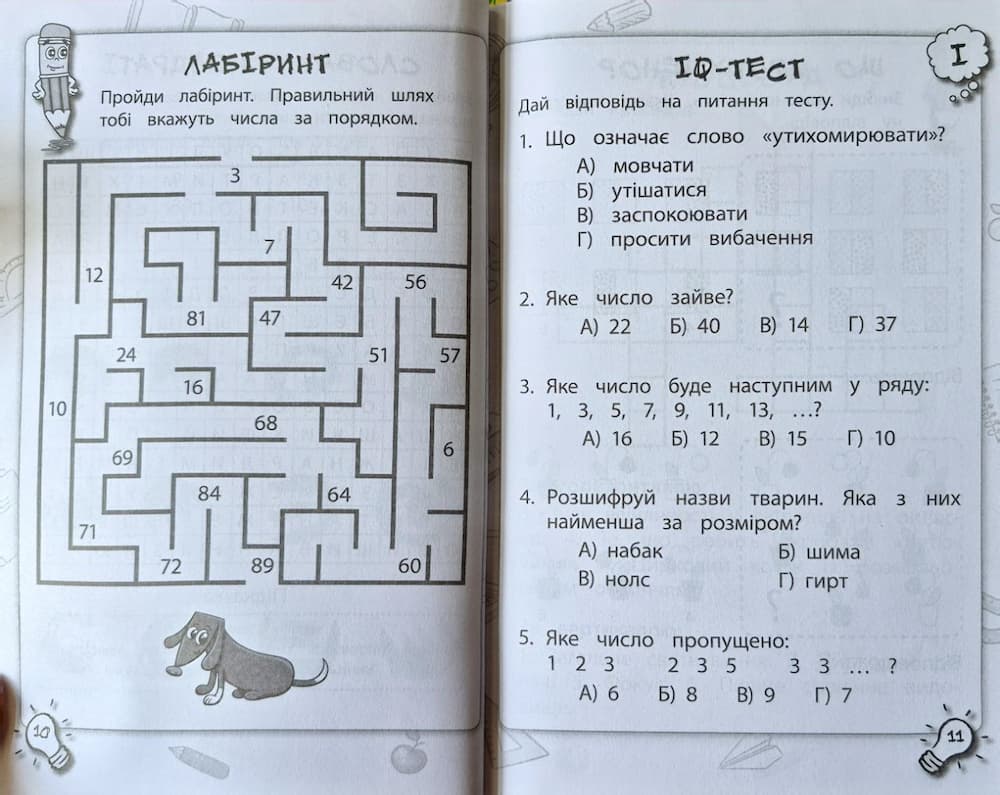 ЛАБІРИНТ
Пройди лабіринт. Правильний шлях
тобі вкажуть числа за порядком.
3
7
12
42
56
81
47
24
51
57
16
10
68
69
6
84
64
71
72
89
60
10
ІQ-ТЕСТ
І
Дай відповідь на питання тесту.
1. Що означає слово «утихомирювати»?
А) мовчати
Б) утішатися
В) заспокоювати
Г) просити вибачення
2. Яке число зайве?
А) 22 Б) 40 В) 14 Г) 37
3. Яке число буде наступним у ряду:
1, 3, 5, 7, 9, 11, 13, ...?
А) 16 Б) 12 В) 15 Г) 10
4. Розшифруй назви тварин. Яка з них
найменша за розміром?
А) набак Б) шима
В) нолс Г) гирт
5. Яке число пропущено:
1 2 3 2 3 5 3 3 ... ?
А) 6 Б) 8 В) 9 Г) 7
11